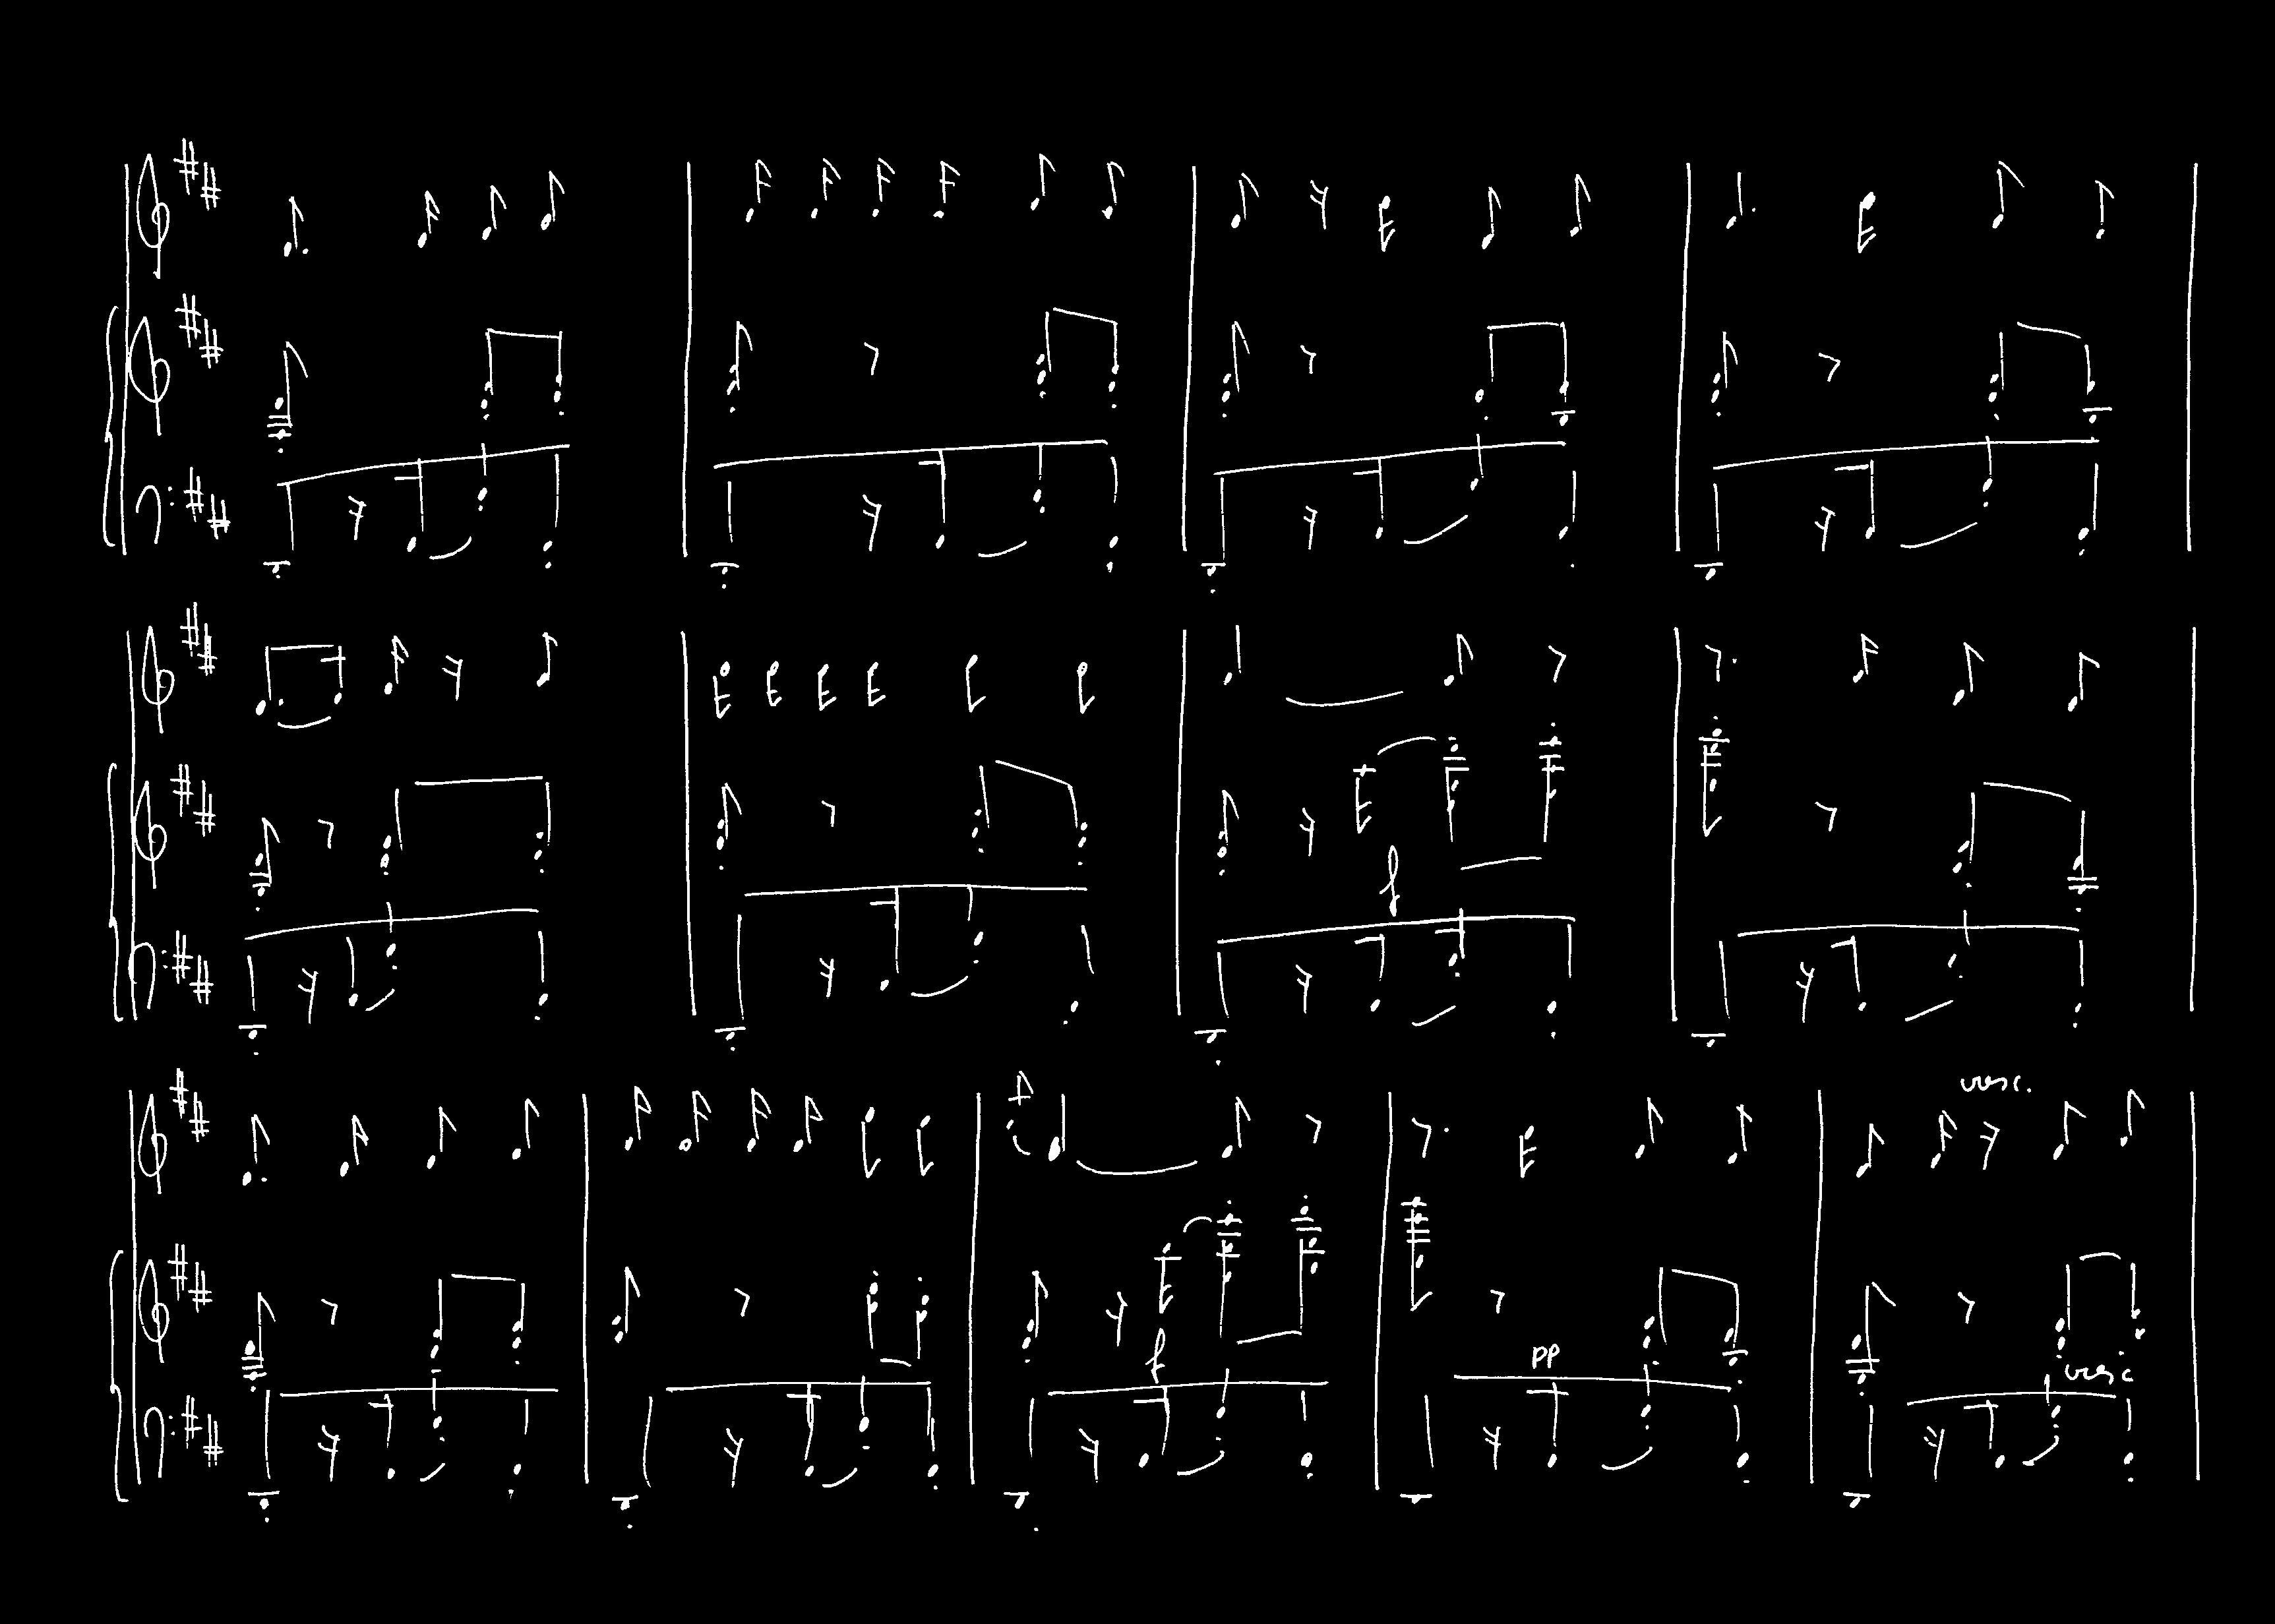 f
cresc.
f
pp
cresc